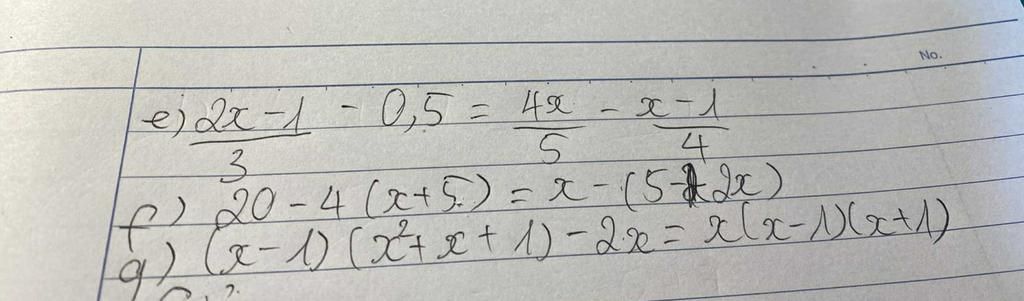 No.
e) (2x-1)/3 - 0,5 = 4x/5 - (x-1)/4
f) 20 - 4 (x+5) = x - (5-2x)
g) (x-1) (x²+x+1) - 2x = x(x-1)(x+1)